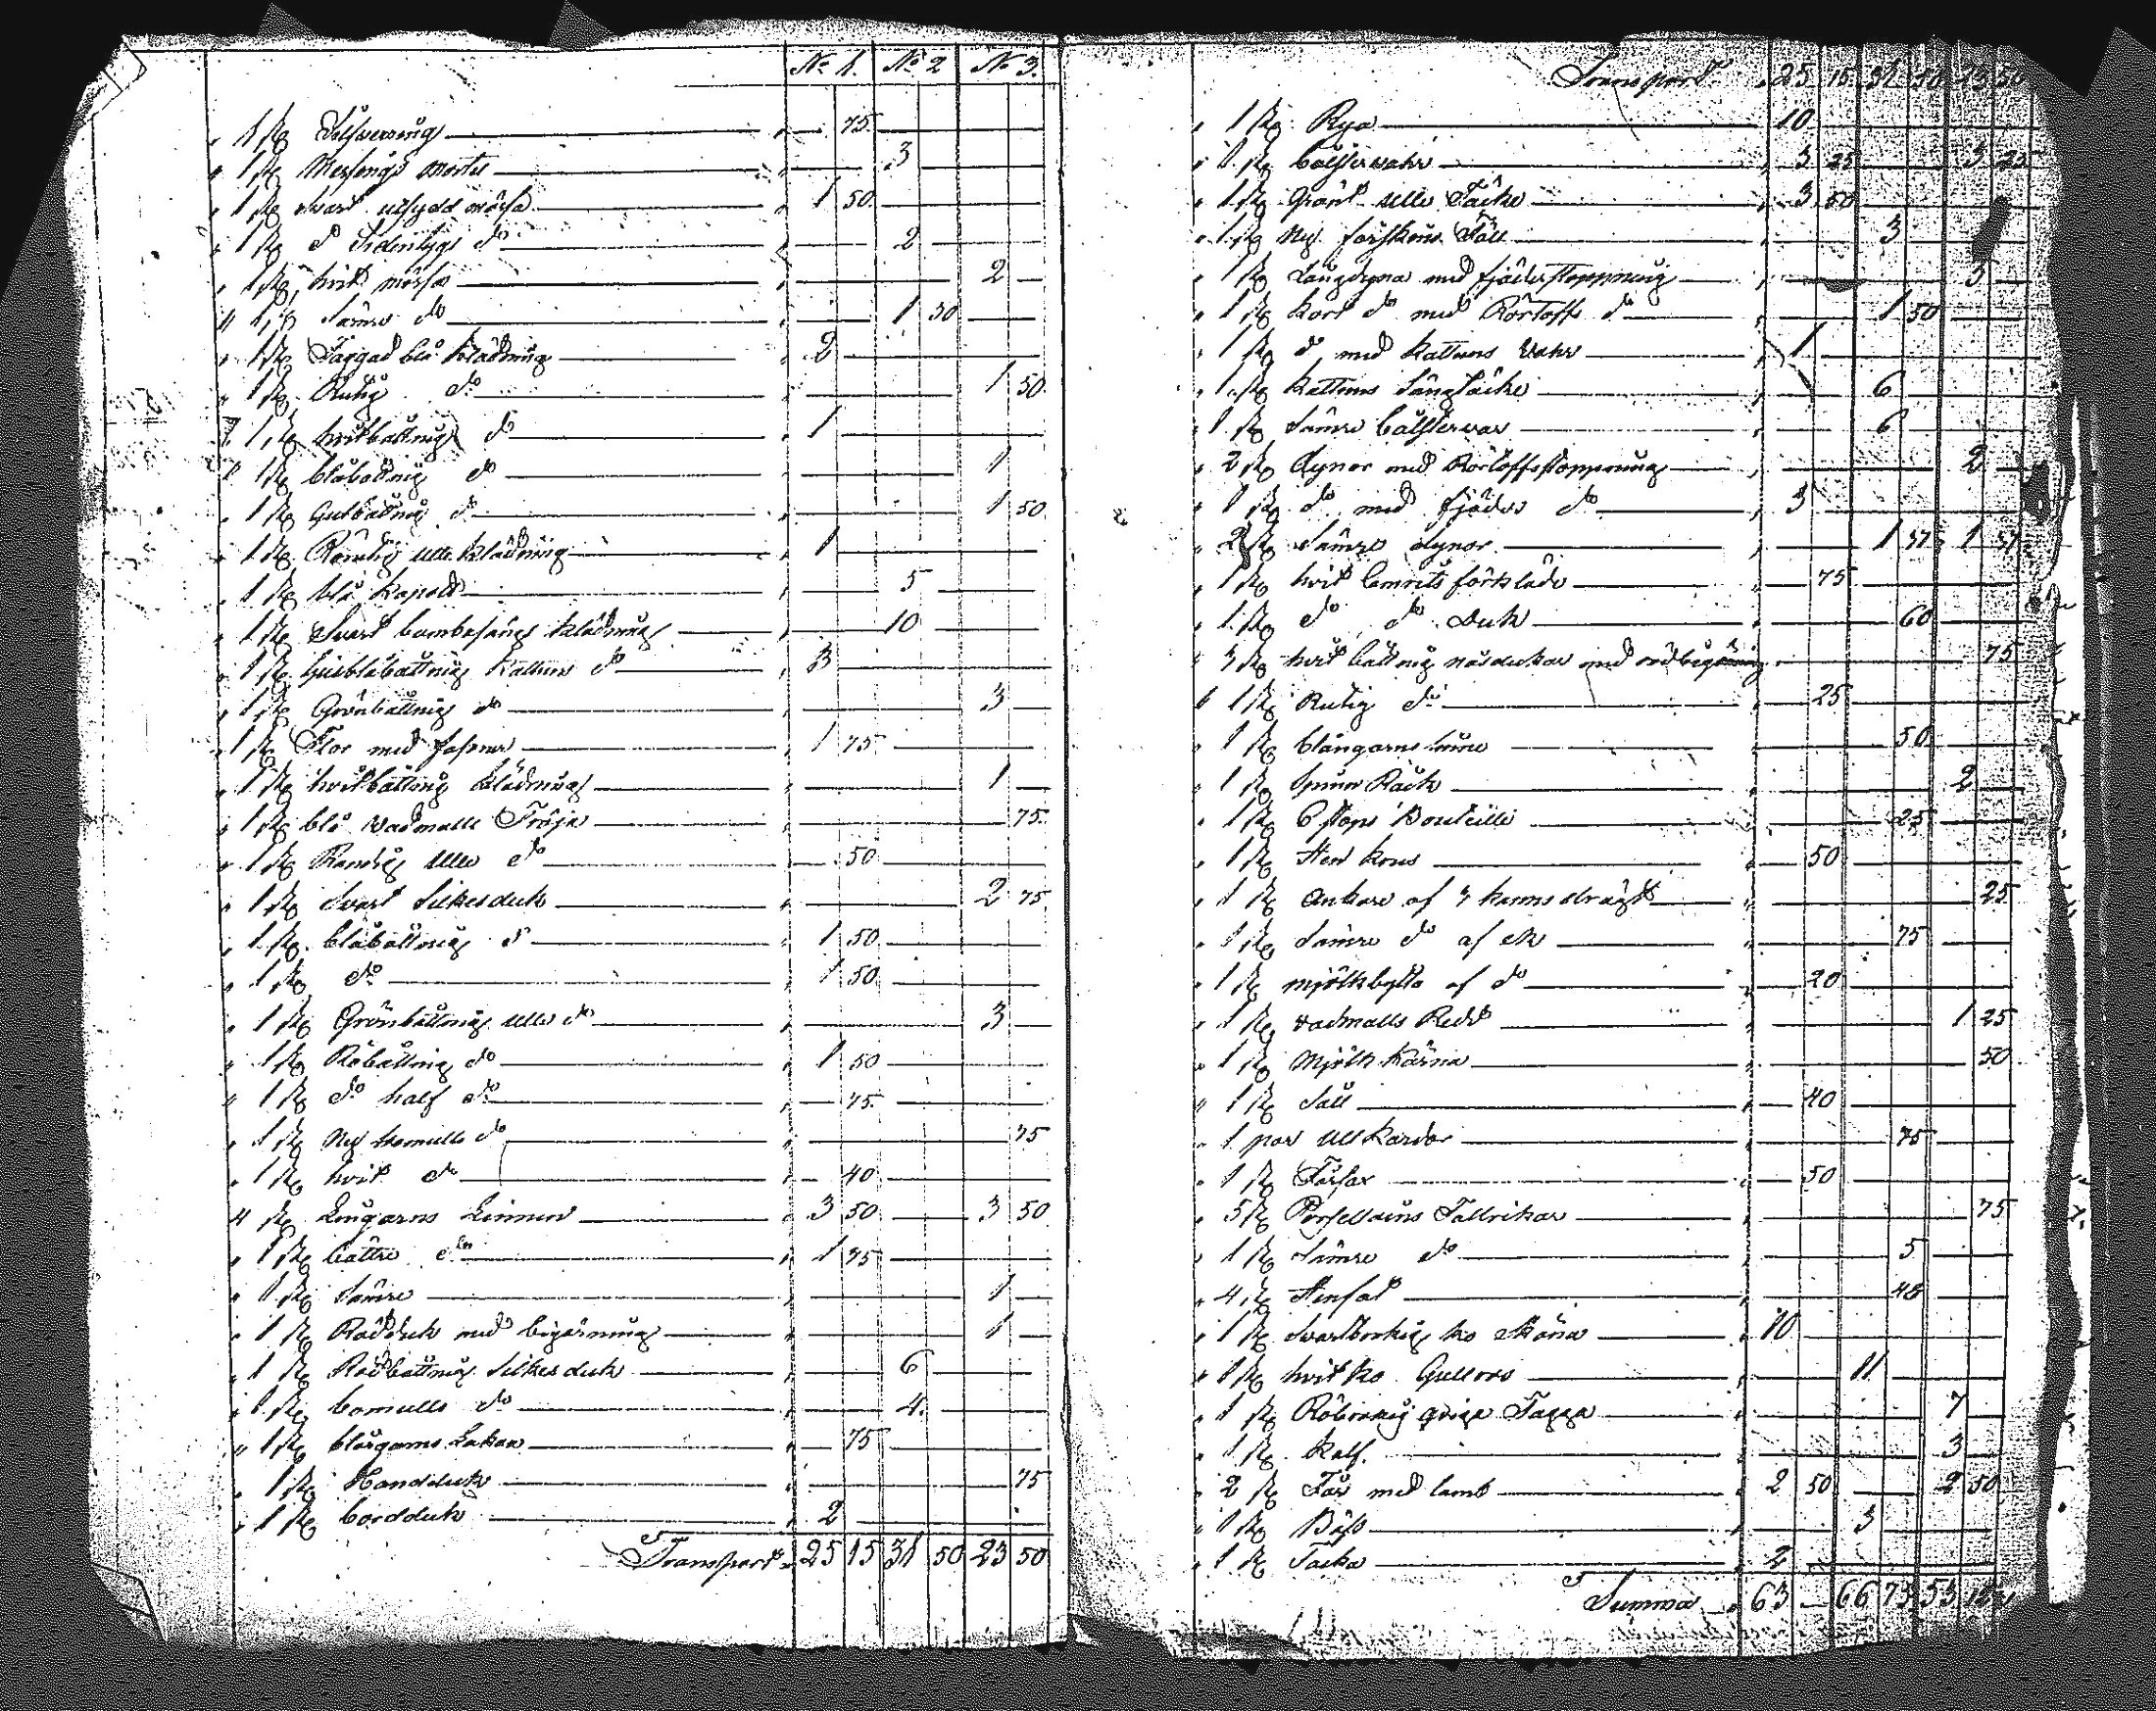 No 1. No 2 No 3.
1 st Silfverring 75
1 st Messings mortel 3
1 st svart utsydd mössa 1 50
1 st do Sidentygs do 2
1 st hvit mössa 2
1 st Sämre do 1 50
1 st Taggad blå klädning 2
1 st Rutig do 1 50
1 st hvitbåttnig do 1
1 st blåbåttnig do 1
1 st Gulbåttnig do 1 50
1 st Randig ulle klädning 1
1 st blå kapott 5
1 st Svart bombasäng klädning 10
1 st ljusblåbåttnig Kattuns do 3
1 st Grönbåttnig do 3
1 st Flor med 1 75
1 st hvitbåttnig klädning 1
1 st blå Vadmalls Tröja 75
1 st Randig Ulle do 50
1 st Svart Silkesduk 2 75
1 st blåbåttnig do 1 50
1 st do 1 50
1 st Grönbåttnig Ulle do 3
1 st Röbåttnig do 1 50
1 st do half do 75
1 st Ny bomulls do 75
1 st hvit do 40
4 st Lingarns Linnen 3 50 3 50
1 st bättre do 1 75
1 st Sämre 1
1 st Rödduk med bigarning 1
1 st Rödbåttnig Silkesduk 6
1 st bomulls do 4
1 st blårgarns Lakan 75
1 st Handduk 75
1 st bordduk 2
Transport 25 15 31 50 23 50
Transport 25 15 31 50 23 50
1 st Rya 10
1 st bolstervahr 3 25 3 25
1 st Grönt ulle Täcke 3 50
1 st Ny fårskins Fäll 3
1 st Långdyna med fjäderstoppning 5
1 st kort do med Rörtoffs do 1 50
1 st do med kattuns Vahr 1
1 st kattuns Sängtäcke 6
1 st Sämre bolstervar 6
2 st dynor med Rörtoffsstoppning 2
1 st do med fjäder do 3
2 st Sämre dynor 1 37 1 37
1 st hvit Camrits förkläde 75
1 st do do Duk 60
3 st hvit båttnig näsdukar med rödbigarning 75
1 st Rutig do 25
1 st blångarns linne 50
1 st Spinn Råck 2
1 st 6 stops Bouteille 25
1 st Sten krus 50
1 st Ankare af 3 kanns drägt 25
1 st Sämre do af ek 75
1 st mjölkbytta af do 20
1 st vadmalls Redt 1 25
1 st Mjölk kärna 50
1 st Såll 40
1 par Ull Kardor 75
1 st 50
5 st Porsellains Tallrikar 75
1 st Sämre do 5
4 st Stenfat 48
1 st Svartbrokig ko Sköna 10
1 st hvit ko Gullros 11
1 st Röbrokig qviga Tagga 7
1 st kalf. 3
2 st Får med lamb 2 50 2 50
1 st Bäss 3
1 st Tacka 2
Summa 63 66 73 53 12